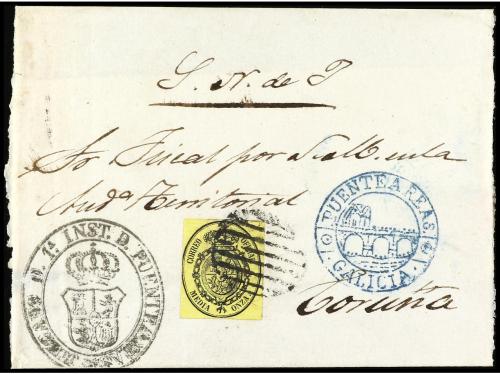 S. N. de J
Sr Fiscal por S. M. en la
Auda Territorial
Coruña
CORREO OFICIAL
MEDIA ONZA
PUENTEAREAS
GALICIA
JUZGADO D. 1ª INST. D. PUENTEAREAS